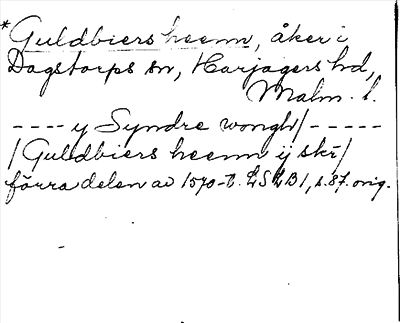 *Guldbiers heenn, åker i
Dagstorps sn, Harjagers hd,
Malm. l.
---- y Syndre wongh/-----
/Guldbiers heenn ij skr/
förra delen av 1570-t. LSLB1, s. 87. orig.